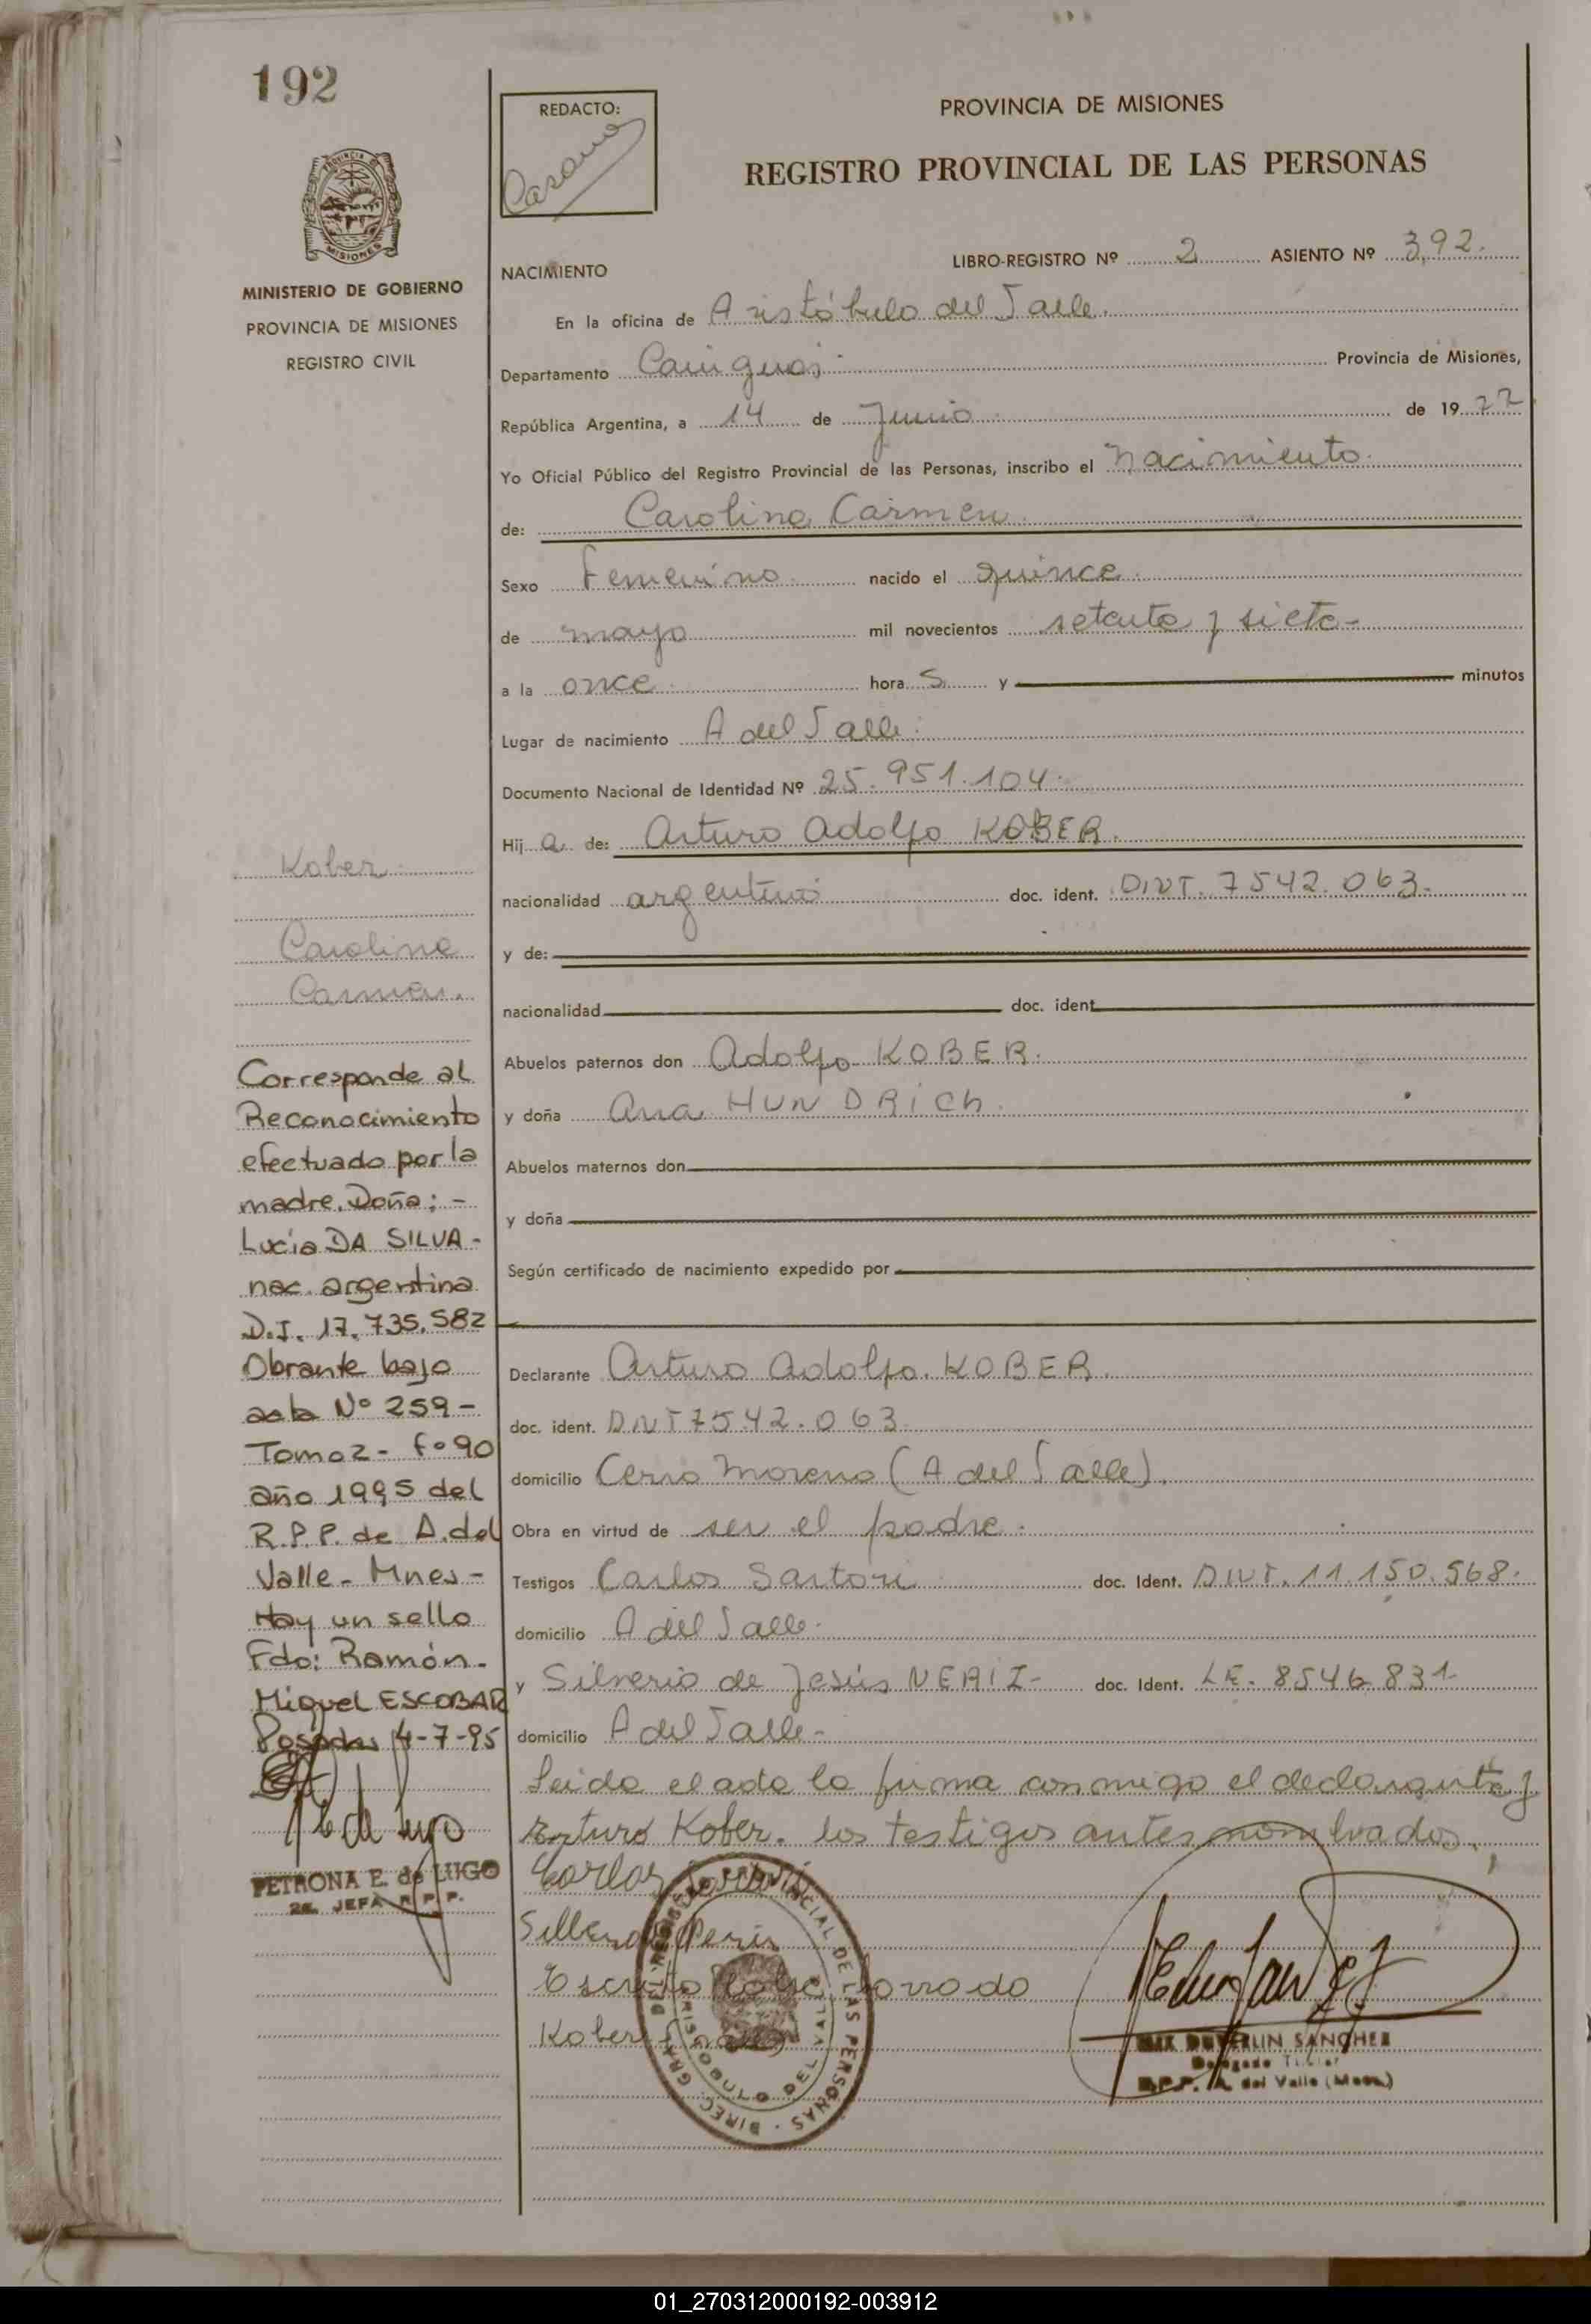 192
REDACTO:
PROVINCIA DE MISIONES
REGISTRO PROVINCIAL DE LAS PERSONAS
PROVINCIA DE
MISIONES
MINISTERIO DE GOBIERNO
PROVINCIA DE MISIONES
REGISTRO CIVIL
NACIMIENTO
LIBRO-REGISTRO Nº 2 ASIENTO Nº 392.
En la oficina de Aristóbulo del Valle.
Departamento Cainguás Provincia de Misiones,
República Argentina, a 14 de Junio de 1977
Yo Oficial Público del Registro Provincial de las Personas, inscribo el Nacimiento
de: Carolina Carmen
Sexo Femenino nacido el quince
de mayo mil novecientos setenta y siete-
a la once hora s y minutos
Lugar de nacimiento A del Valle.
Documento Nacional de Identidad Nº 25.951.104.
Hij a de: Arturo Adolfo KOBER.
nacionalidad argentino doc. ident. DNI. 7542.063.
y de:
nacionalidad doc. ident
Abuelos paternos don Adolfo KOBER.
y doña Ana HUNDRICH.
Abuelos maternos don
y doña
Según certificado de nacimiento expedido por
Declarante Arturo Adolfo. KOBER.
doc. ident. DNI 7542.063
domicilio Cerro Moreno (A del Valle).
Obra en virtud de ser el padre.
Testigos Carlos Sartori doc. Ident. DNI. 11.150.568.
domicilio A del Valle.
y Silverio de Jesús NERIZ- doc. Ident. LE. 8546831-
domicilio A del Valle-
Leida el acta la firma conmigo el declarante y
Arturo Kober. los testigos antes nombrados.
Carlos Sartori
Escrito sobre borrado
Kober
Kober
Carolina
Carmen.
Corresponde al
Reconocimiento
efectuado por la
madre. Doña; -
Lucia DA SILVA -
nac. argentina
D.I. 17.735.582
Obrante bajo
acta Nº 259 -
Tomo 2 - fº 90
año 1995 del
R.P.P. de A. del
Valle - Mnes -
Hay un sello
Fdo: Ramón -
Miguel ESCOBAR
Posadas 4-7-95
PETRONA E. de LUGO
2a. JEFA R.P.P.
DIREC. GRAL. DEL REGISTRO PROVINCIAL DE LAS PERSONAS
ARISTOBULO DEL VALLE
SANCHEZ
Delegado Titular
R.P.P. A. del Valle (Mnes.)
01_270312000192-003912